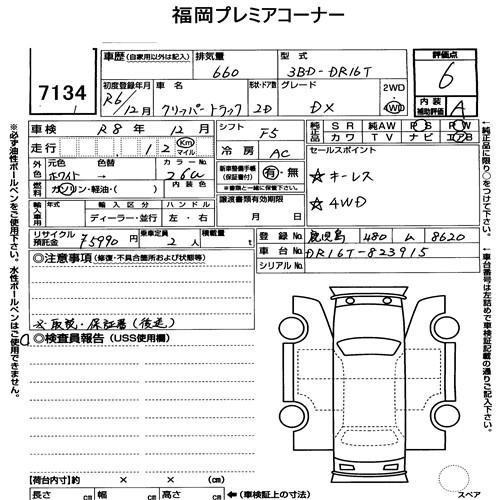 福岡プレミアコーナー
7134
車歴 (自家用以外は記入) 排気量 型式
660 3BD-DR16T
評価点
6
内装補助評価 A
初度登録年月 車名 形状・ドア数 グレード 2WD
R6/12月 クリッパートラック 2D DX 4WD
車検 R8年 12月 シフト F5
純正品 SR 純AW PS PW
純正品 カワ TV ナビ エアB
走行 12 Km マイル 冷房 AC
セールスポイント
☆キーレス
☆4WD
外色 元色 色替 カラーNo.
ホワイト → 26U
新車整備手帳(保証書付) 有・無
(記載名義と一緒にご提示ください)
燃料 ガソリン・軽油・( ) 内装色
譲渡書類有効期限
月 日
輸入車用 輸入区分 ハンドル
ディーラー・並行 左・右
リサイクル預託金 ¥5990円 乗車定員 2人 積載量 t
登録No. 鹿児島 480 ム 8620
車台No. DR16T-823915
シリアルNo.
◎注意事項 (修復・不具合箇所および状態等)
※取説・保証書(後送)
◎検査員報告 (USS使用欄)
【荷台内寸】約 × × cm
長さ cm 幅 cm 高さ cm ←(車検証上の寸法)
スペア
※必ず油性ボールペンをご使用下さい。水性ボールペンはご使用できません。
←純正品に限り○をつけて下さい。
←車台番号は左詰めで車検証記載の通りご記入下さい。